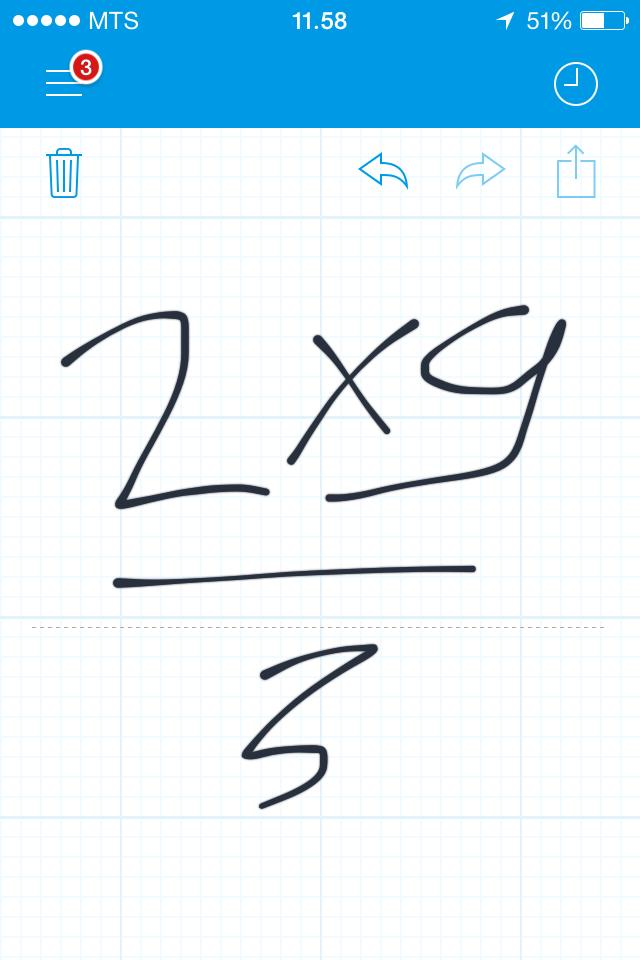 MTS 11.58 51%
3
2 x 9
3